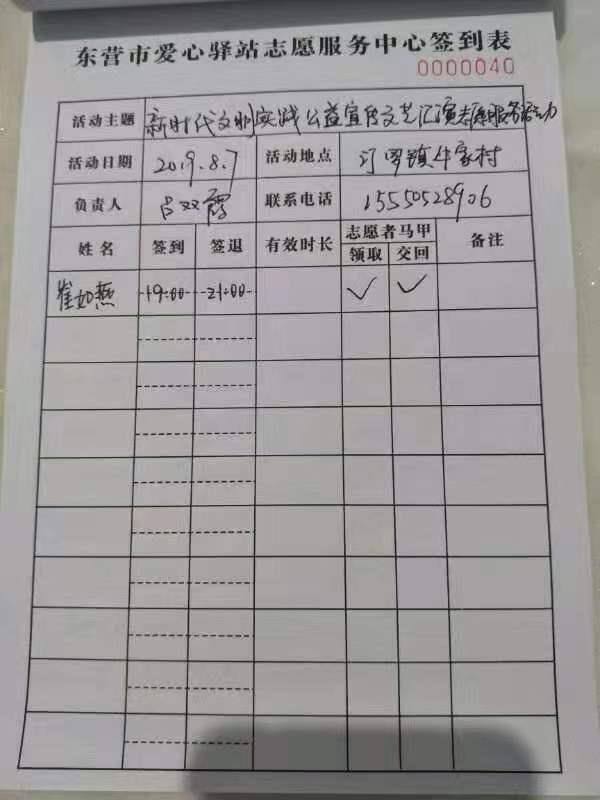 东营市爱心驿站志愿服务中心签到表
0000040
活动主题 新时代文明实践公益宣传文艺汇演志愿服务活动
活动日期 2019.8.7 活动地点 汀罗镇牛家村
负责人 吕双霞 联系电话 15550528906
姓名 签到 签退 有效时长 志愿者马甲 备注
领取 交回
崔如燕 19:00 21:00 ✓ ✓